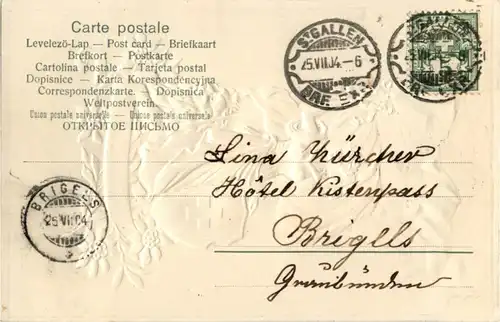 Carte postale
Levelezö-Lap — Post card — Briefkaart
Brefkort — Postkarte
Cartolina postale — Tarjeta postal
Dopisnice - Karta Korespondencyjna
Correspondenzkarte. Dopisnica
Weltpostverein.
Union postale universelle — Unione postale universale
ОТКРЫТОЕ ПИСЬМО
ST GALLEN
25.VII.04.-6
BRF. EXP.
Lina Zürcher
Hôtel Kistenpass
Brigels
Graubünden
BRIGELS
25 VII 04